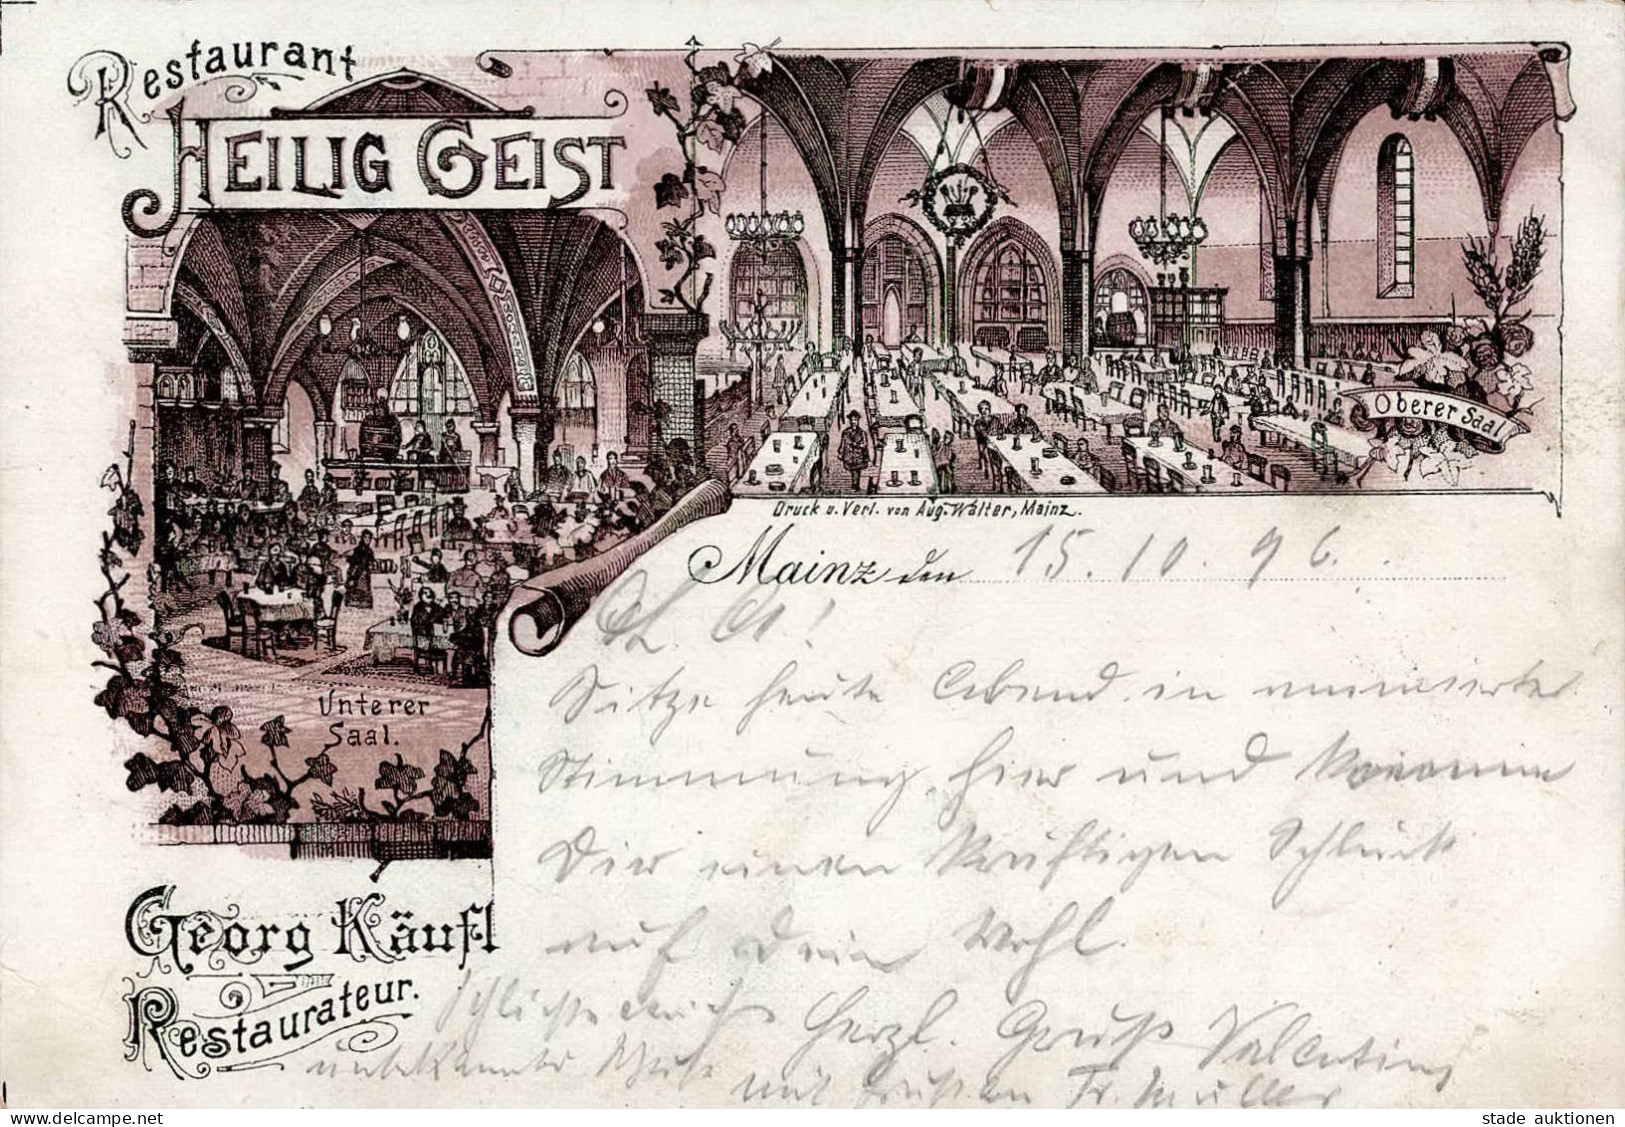 Restaurant
HEILIG GEIST
Oberer Saal
Druck u. Verl. von Aug. Walter, Mainz.
Mainz den 15. 10. 96.
Unterer
Saal.
Sitze heute Abend in animierter
Stimmung hier und komme
Dir einen kräftigen Schluck
auf Dein Wohl.
Herzl. Gruß Valentin
Georg Käufl
Restaurateur.
unbekannter Weise
mit Grüßen Fr. Müller
stade auktionen